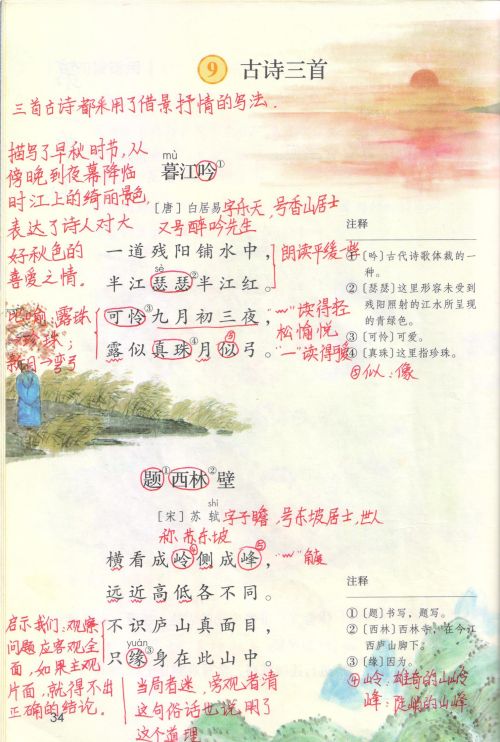 9 古诗三首
三首古诗都采用了借景抒情的写法.
描写了早秋时节,从
傍晚到夜幕降临
时江上的绮丽景色,
表达了诗人对大
好秋色的
喜爱之情.
mù
暮江吟①
[唐] 白居易 字乐天,号香山居士
又号醉吟先生
一道残阳铺水中,
sè
半江瑟瑟②半江红。
朗读平缓些
可怜③九月初三夜,
露似真珠④月似弓。
露珠
珍珠;
弯弓
“﹏”读得轻
松愉悦
“一”读得
注释
①[吟]古代诗歌体裁的一
种。
②[瑟瑟]这里形容未受到
残阳照射的江水所呈现
的青绿色。
③[可怜]可爱。
④[真珠]这里指珍珠。
⑤似:像
题①西林②壁
shì
[宋] 苏 轼 字子瞻,号东坡居士,世人
称苏东坡
横看成岭④侧成峰⑤,
远近高低各不同。
不识庐山真面目,
yuán
只缘③身在此山中。
启示我们:观察
问题应客观全
面,如果主观
片面,就得不出
正确的结论.
当局者迷,旁观者清
这句俗话也说明了
这个道理
注释
①[题]书写,题写。
②[西林]西林寺,在今江
西庐山脚下。
③[缘]因为。
④岭:雄奇的山岭
峰:陡峭的山峰
34